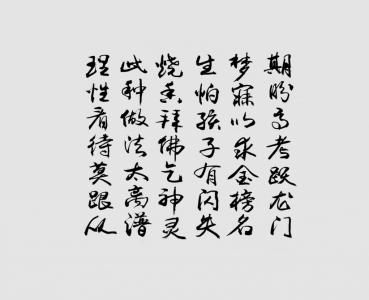 期盼高考跃龙门
梦寐以求金榜名
生怕孩子有闪失
烧香拜佛乞神灵
此种做法太离谱
理性看待莫跟从